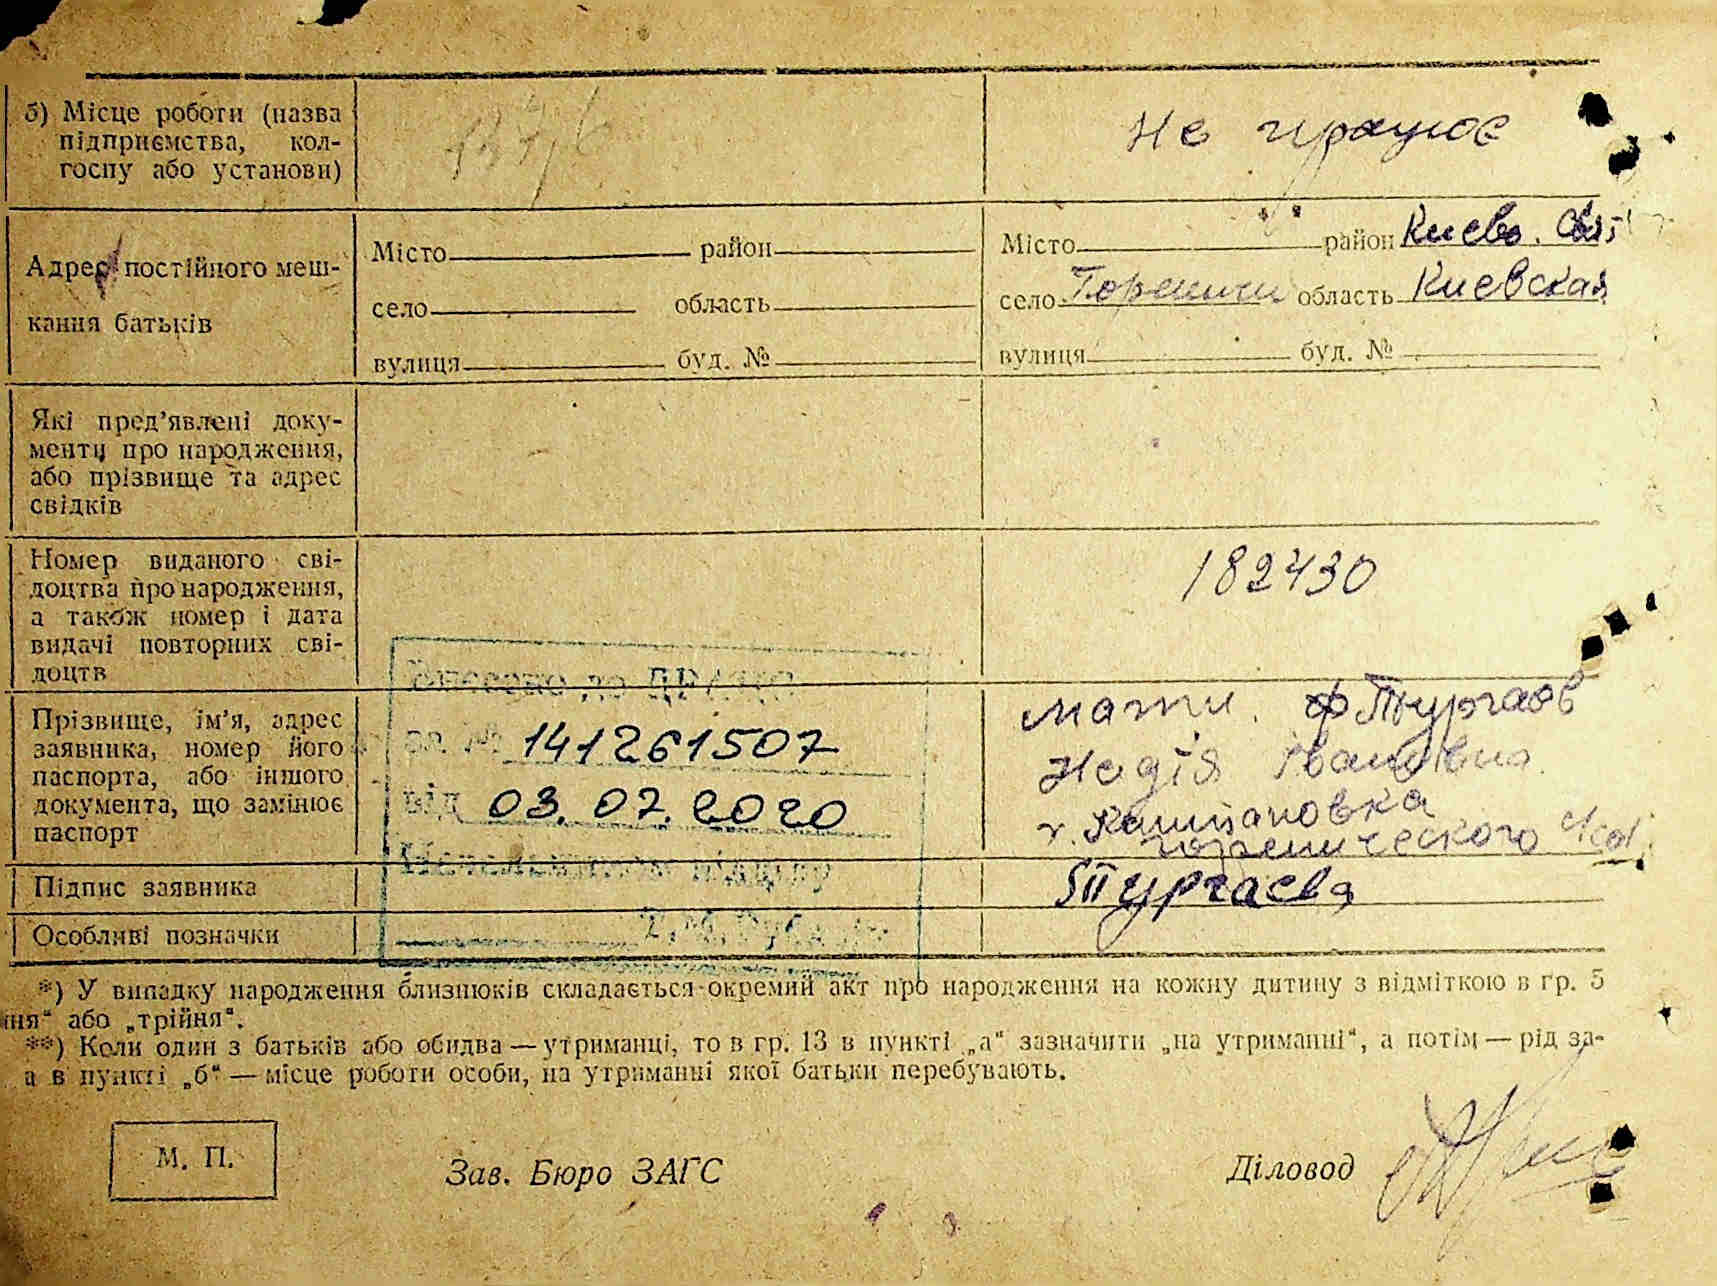 б) Місце роботи (назва
підприємства, кол-
госпу або установи)
Не працює
Адрес постійного меш-
кання батьків
Місто район
село область
вулиця буд. №
Місто район Киево. Свят
село Гореничи область Киевская
вулиця буд. №
Які пред’явлені доку-
менти про народження,
або прізвище та адрес
свідків
Номер виданого сві-
доцтва про народження,
а також номер і дата
видачі повторних сві-
доцтв
182430
Прізвище, ім’я, адрес
заявника, номер його
паспорта, або іншого
документа, що замінює
паспорт
Внесено до ДРАЦС
№ 141261507
від 03.07.2020
мати
Надія Іванівна
горенического
Підпис заявника
Тургаева
Особливі позначки
*) У випадку народження близнюків складається окремий акт про народження на кожну дитину з відміткою в гр. 5
“ або „трійня“.
**) Коли один з батьків або обидва — утриманці, то в гр. 13 в пункті „а“ зазначити „на утриманні“, а потім — рід за-
а в пункті „б“ — місце роботи особи, на утриманні якої батьки перебувають.
М. П.
Зав. Бюро ЗАГС
Діловод